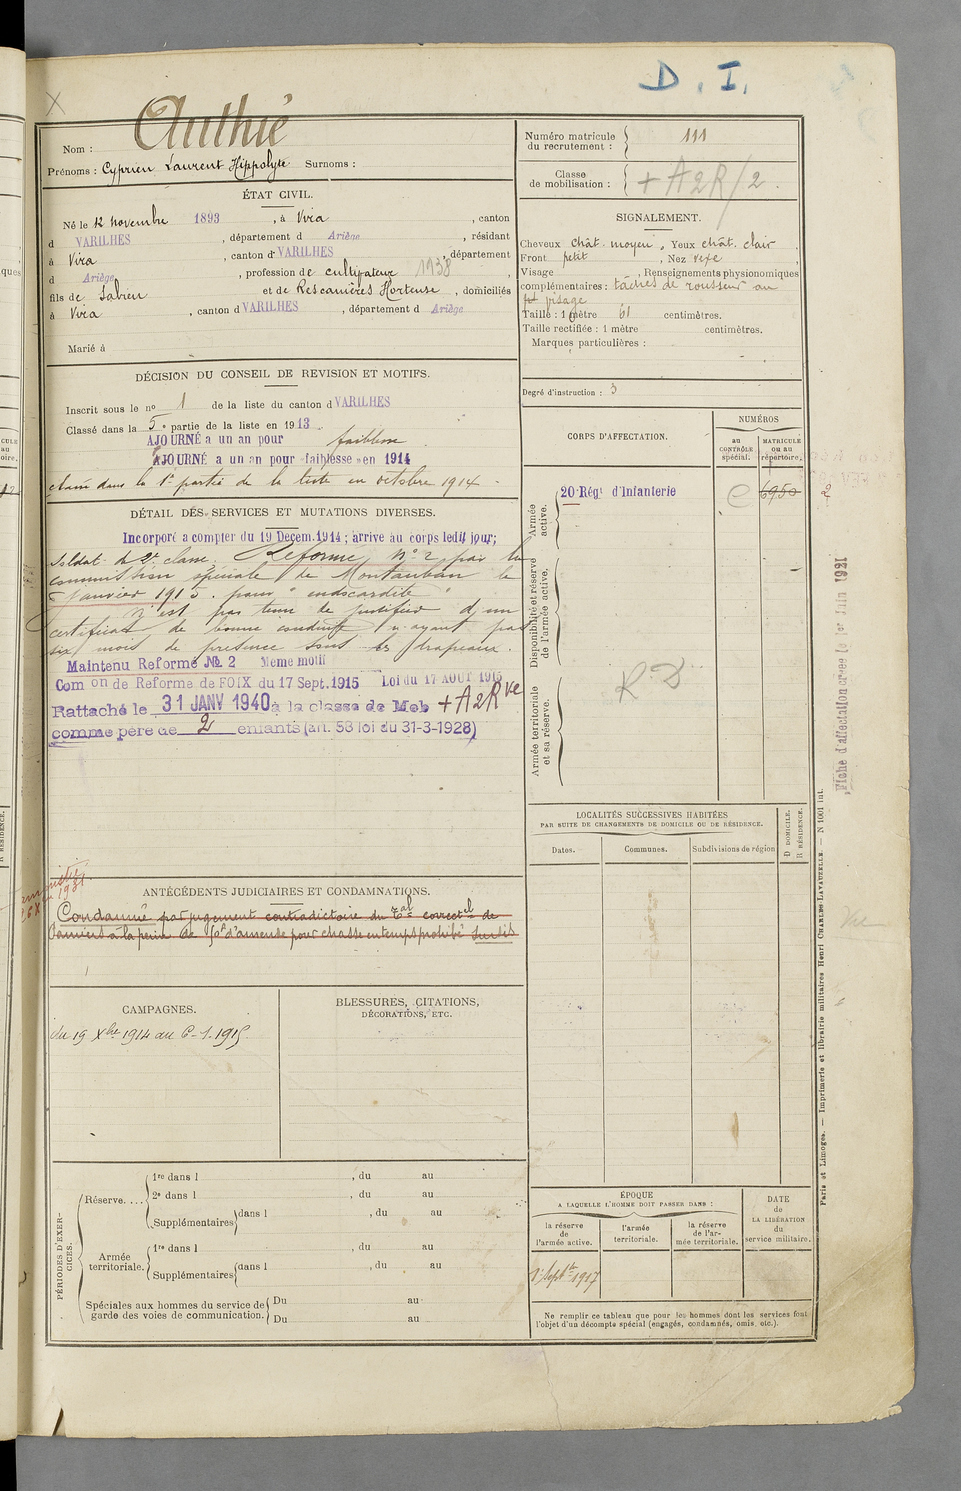 D. I.
X
Nom : Authié
Prénoms : Cyprien Laurent Hippolyte Surnoms :
Numéro matricule du recrutement : 111
Classe de mobilisation : + A2R/2.
ÉTAT CIVIL.
Né le 12 novembre 1893, à Vira, canton
d VARILHES, département d Ariège, résidant
à Vira, canton d VARILHES, département
d Ariège, profession de cultivateur 1938
fils de et de Rescanières Hortense, domiciliés
à Vira, canton d VARILHES, département d Ariège
Marié à
SIGNALEMENT.
Cheveux chât. moyen, Yeux chât. clair,
Front petit, Nez vexe,
Visage , Renseignements physionomiques
complémentaires : taches de rousseur au
visage
Taille : 1 mètre 61 centimètres.
Taille rectifiée : 1 mètre centimètres.
Marques particulières :
Degré d'instruction : 3
DÉCISION DU CONSEIL DE REVISION ET MOTIFS.
Inscrit sous le no 1 de la liste du canton d VARILHES
Classé dans la 5e partie de la liste en 1913.
AJOURNÉ a un an pour faiblesse.
AJOURNÉ a un an pour "faiblesse" en 1914
classé dans la 1e partie de la liste en octobre 1914.
DÉTAIL DES SERVICES ET MUTATIONS DIVERSES.
Incorporé a compter du 19 Décem.1914 ; arrivé au corps ledit jour;
Soldat de 2e classe. Réformé No 2 par la
commission spéciale de Montauban le
Janvier 1915. pour "endocardite"
N'est pas tenu de justifier d'un
certificat de bonne conduite n'ayant pas
six mois de présence sous les drapeaux.
Maintenu Reformé No 2 Meme motif
Com on de Reforme de FOIX du 17 Sept. 1915 Loi du 17 AOUT 1915
Rattaché le 31 JANV 1940 à la classe de Mob + A2Rve
comme père de 2 enfants (art. 58 loi du 31-3-1928)
CORPS D'AFFECTATION.
NUMÉROS
AU CONTRÔLE spécial.
MATRICULE ou au répertoire.
Armée active.
20e Régt d'Infanterie
6950
2
Disponibilité et réserve de l'armée active.
Armée territoriale et sa réserve.
R.D
Fiche d'affectation créée le 1er Juin 1921
LOCALITÉS SUCCESSIVES HABITÉES
PAR SUITE DE CHANGEMENTS DE DOMICILE OU DE RÉSIDENCE.
Dates.
Communes.
Subdivisions de région
D DOMICILE.
R RÉSIDENCE.
ANTÉCÉDENTS JUDICIAIRES ET CONDAMNATIONS.
Condamné par jugement contradictoire du Tal correctel de
Pamiers à la peine de 50f d'amende pour chasse en temps prohibé Sursis
CAMPAGNES.
du 19 Xbre 1914 au 6-1-1915.
BLESSURES, CITATIONS, DÉCORATIONS, ETC.
PÉRIODES D'EXERCICES.
Réserve....
1re dans l , du au
2e dans l , du au
Supplémentaires dans l , du au
Armée territoriale.
1re dans l , du au
Supplémentaires dans l , du au
Spéciales aux hommes du service de garde des voies de communication.
Du au
Du au
ÉPOQUE
A LAQUELLE L'HOMME DOIT PASSER DANS :
la réserve de l'armée active.
l'armée territoriale.
la réserve de l'armée territoriale.
DATE de LA LIBÉRATION du service militaire.
1e Septbre 1917
Ne remplir ce tableau que pour les hommes dont les services font
l'objet d'un décompte spécial (engagés, condamnés, omis, etc.).
Paris et Limoges. — Imprimerie et librairie militaires Henri CHARLES-LAVAUZELLE. — N 1001 int.